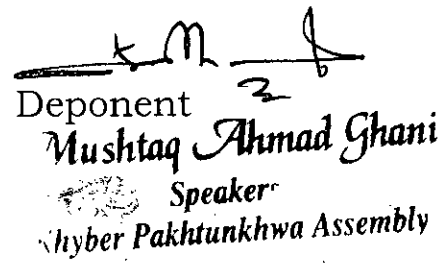 Deponent
Mushtaq Ahmad Ghani
Speaker
Khyber Pakhtunkhwa Assembly